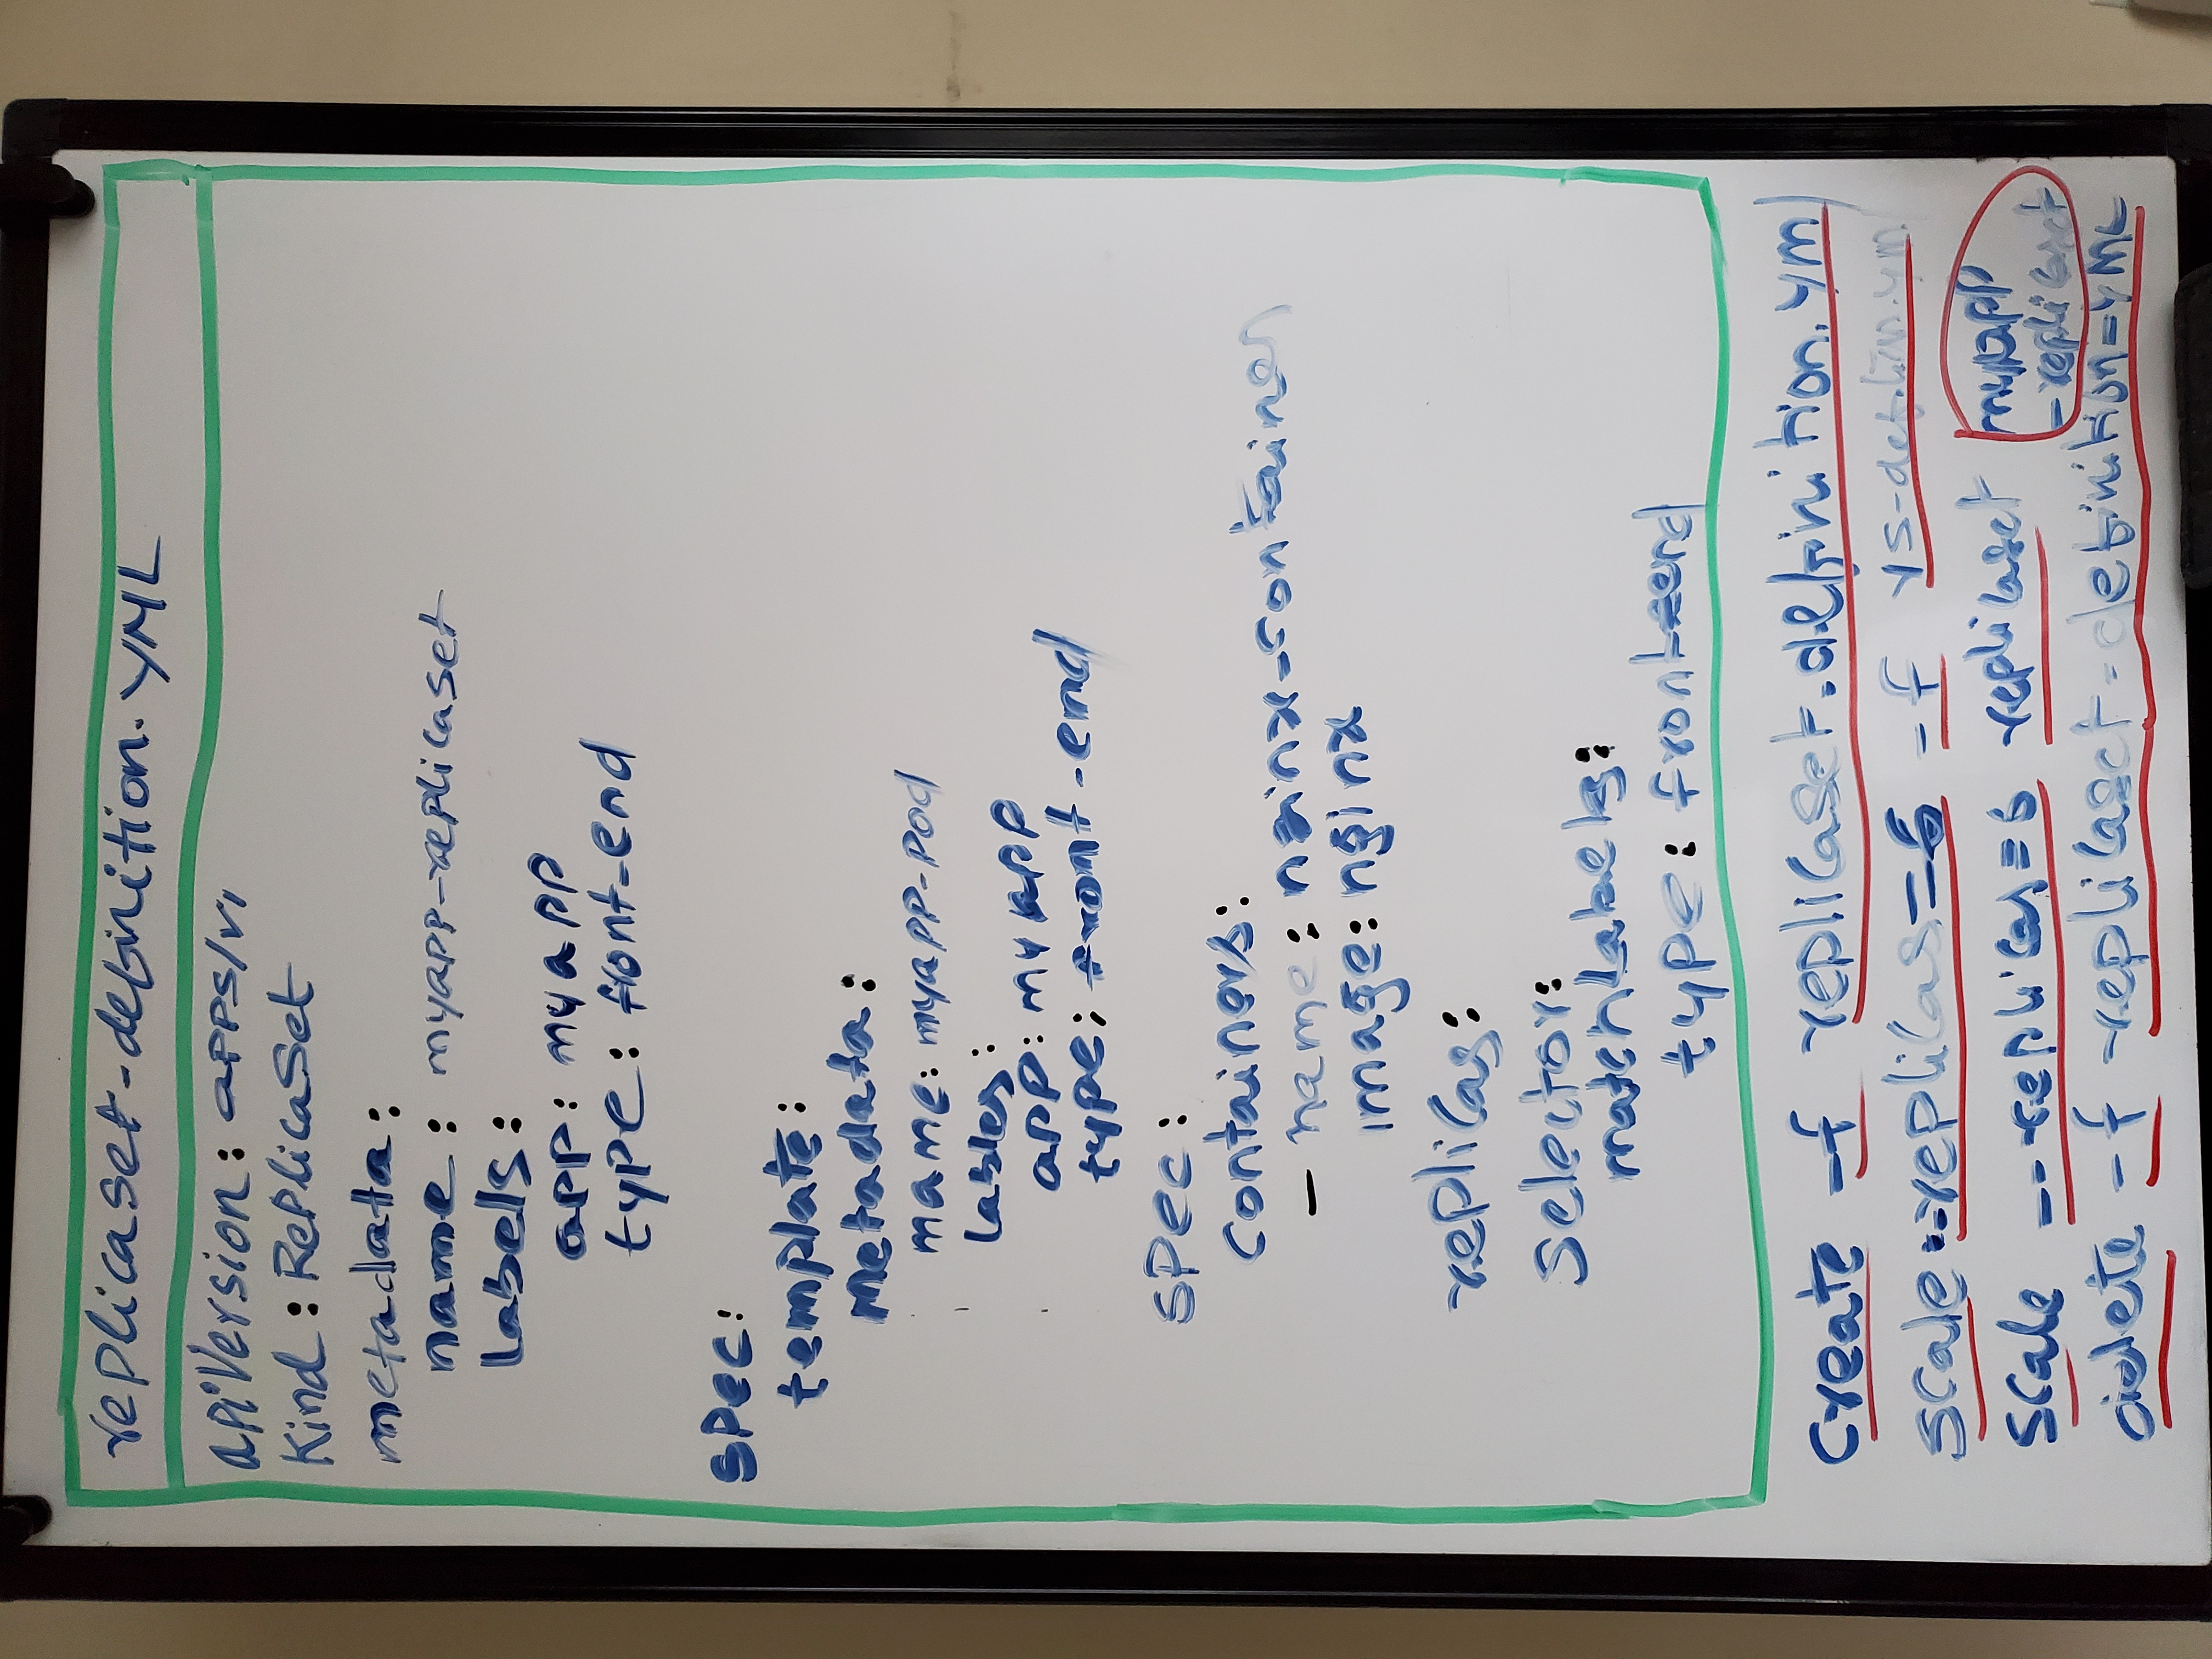 replicaset-definition.YML
apiVersion: apps/v1
Kind: ReplicaSet
metadata:
name: myapp-replicaset
labels:
app: myapp
type: front-end
spec:
template:
Metadata:
mame: myapp-pod
lables:
app: myapp
type: front-end
spec:
containers:
- name: nginx-container
image: nginx
replicas:
Selector:
matchLabels:
type: front-end
create -f replicaset-definition.yml
scale --replicas=6 -f rs-defition.yml
scale --replicas=6 replicaset myapp
-replicaset
delete -f replicaset-definition=YML